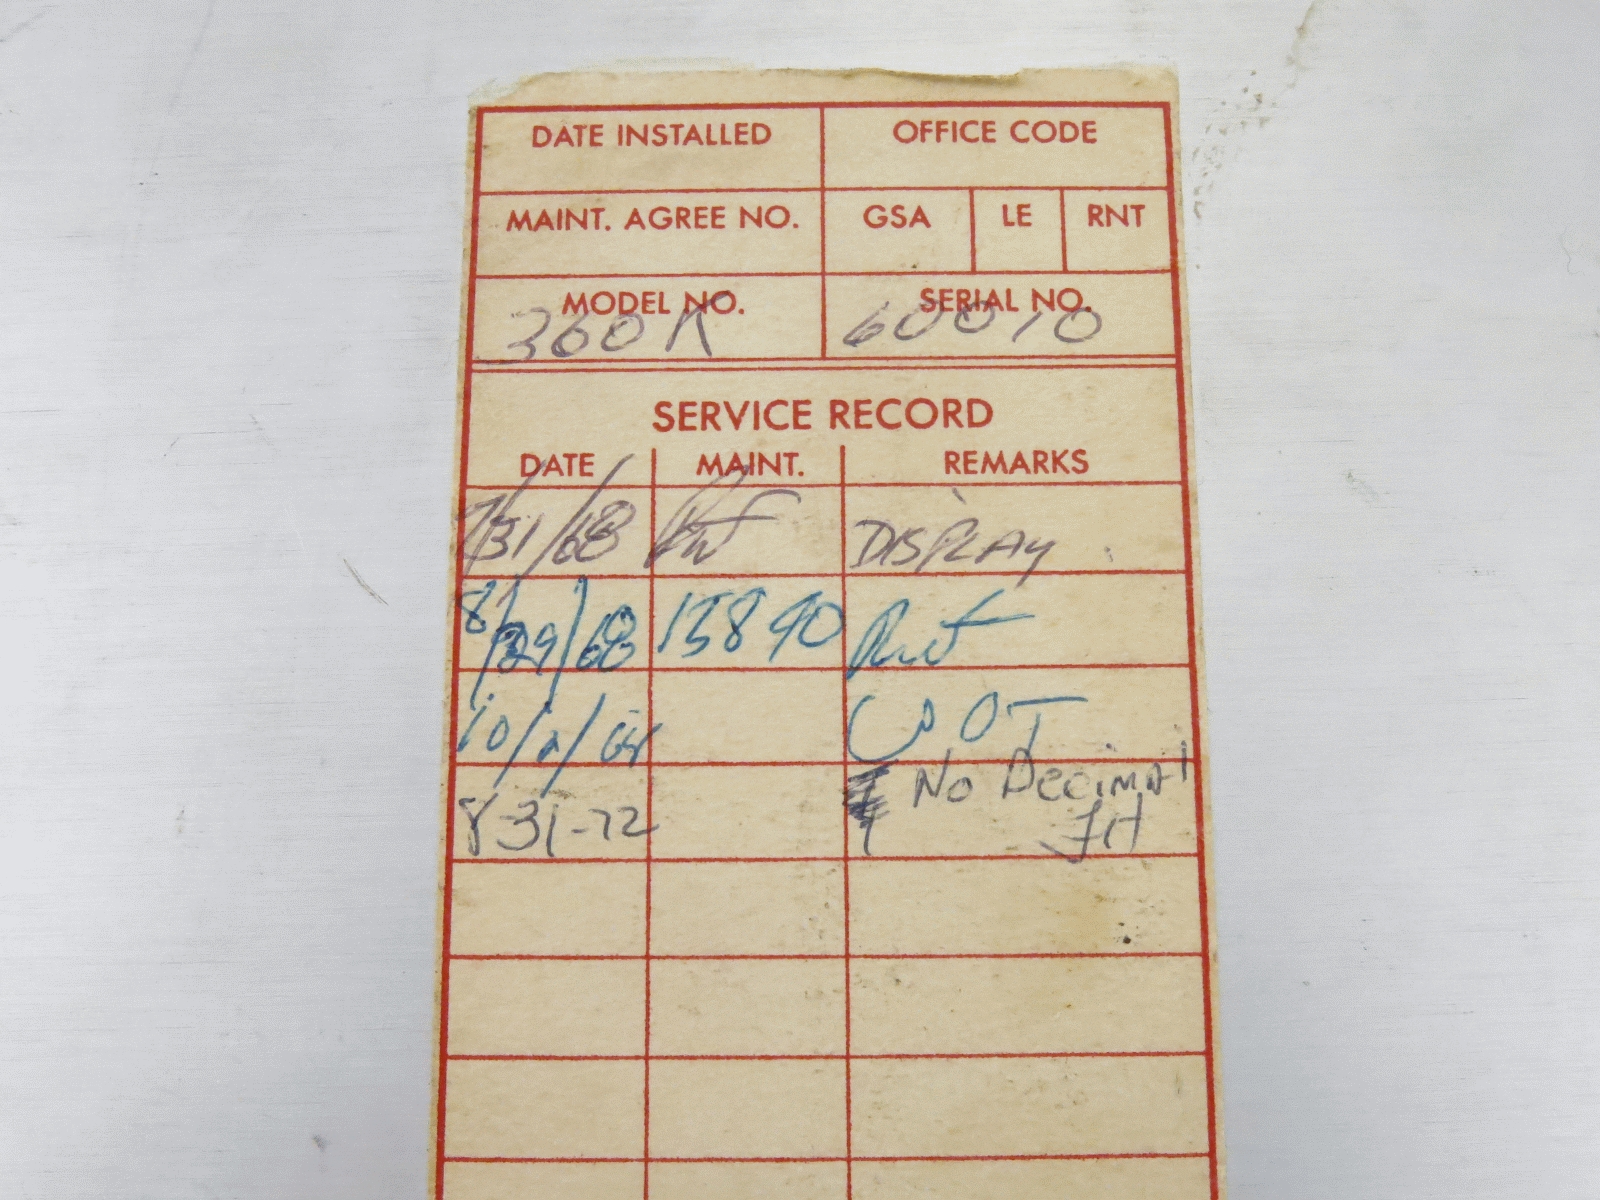 DATE INSTALLED OFFICE CODE
MAINT. AGREE NO. GSA LE RNT
MODEL NO. SERIAL NO.
360K 60010
SERVICE RECORD
DATE MAINT. REMARKS
7/31/68 DISPLAY
8/29/68 15890
10/2/68 OT
8-31-72 No Decimal
JH